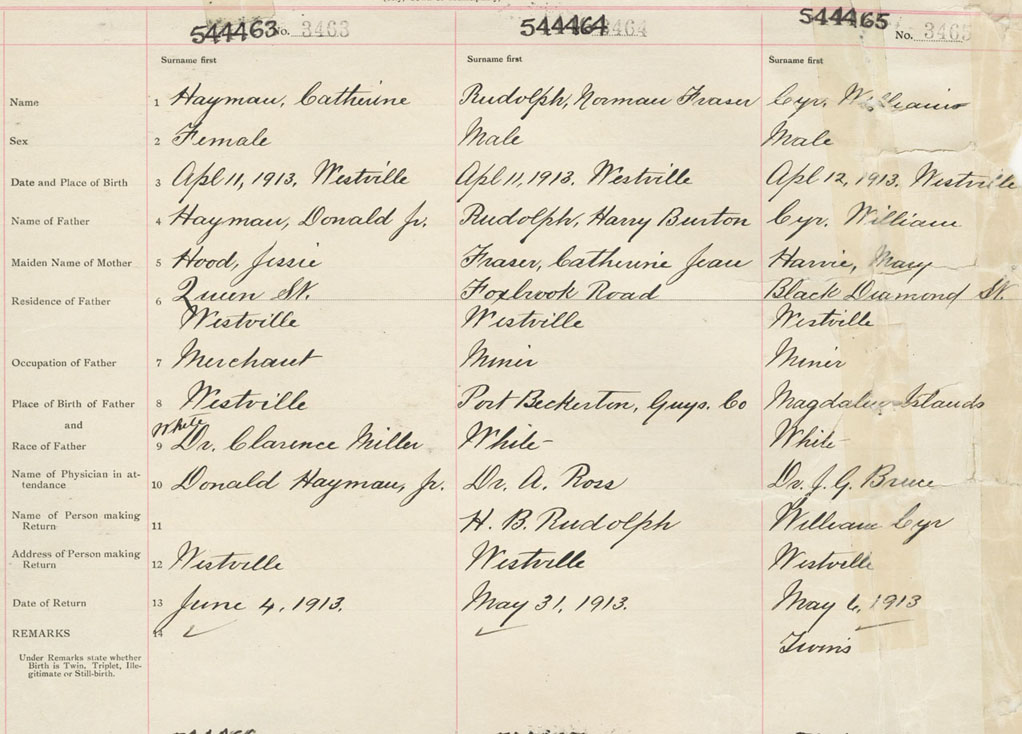 544463 No. 3463 544464 3464 544465 No. 3465
Surname first Surname first Surname first
Name 1 Hayman, Catherine Rudolph, Norman Fraser Cyr, William
Sex 2 Female Male Male
Date and Place of Birth 3 Apl 11, 1913. Westville Apl 11, 1913. Westville Apl 12, 1913. Westville
Name of Father 4 Hayman, Donald Jr. Rudolph, Harry Burton Cyr, William
Maiden Name of Mother 5 Hood, Jessie Fraser, Catherine Jean Harvie, Mary
Residence of Father 6 Queen St. Foxbrook Road Black Diamond St.
Westville Westville Westville
Occupation of Father 7 Merchant Miner Miner
Place of Birth of Father 8 Westville Port Beckerton, Guys. Co Magdalen Islands
and White
Race of Father 9 Dr. Clarence Miller White White
Name of Physician in at-
tendance 10 Donald Hayman, Jr. Dr. A. Ross Dr. J. G. Bruce
Name of Person making
Return 11 H. B. Rudolph William Cyr
Address of Person making
Return 12 Westville Westville Westville
Date of Return 13 June 4, 1913. May 31, 1913. May 6, 1913
REMARKS 14
Twins
Under Remarks state whether
Birth is Twin, Triplet, Ille-
gitimate or Still-birth.